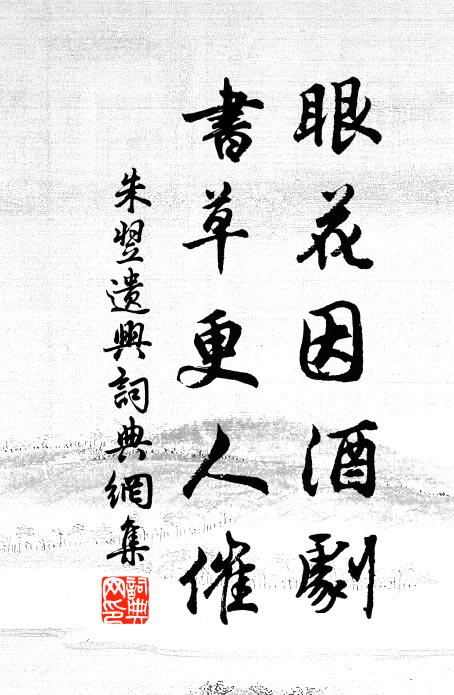 眼花因酒劇
書草更人催
朱翌遺興詞典網集
詞典网印